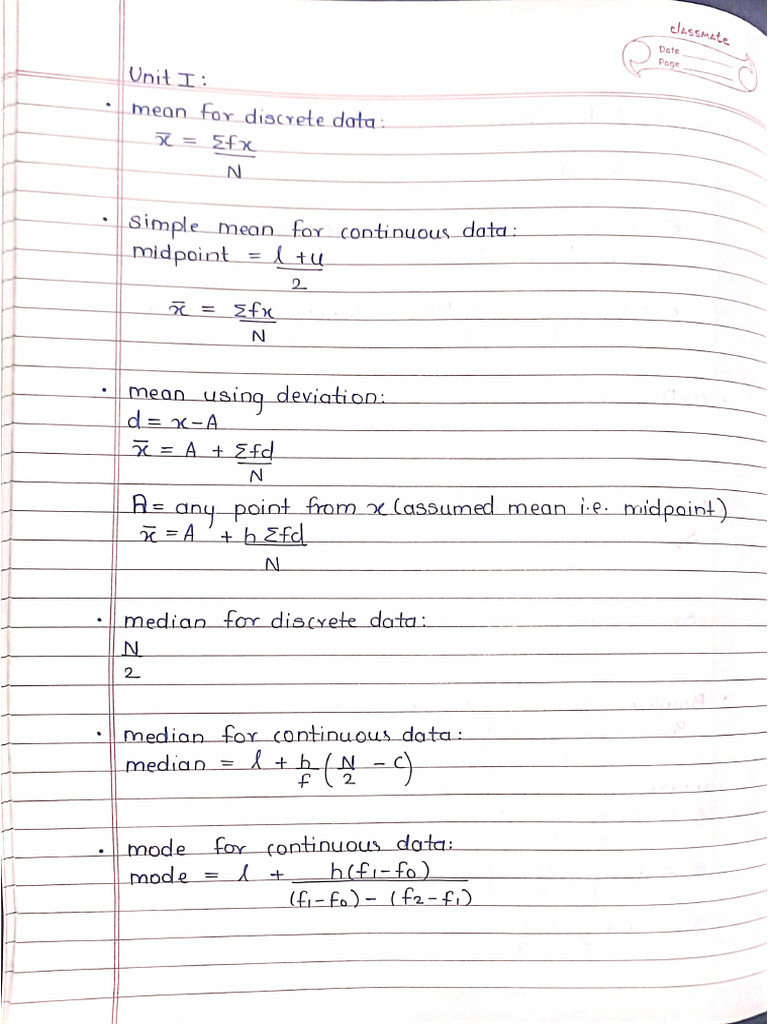 classmate
Date
Page
Unit I:
• mean for discrete data:
x̄ = Σfx
N
• simple mean for continuous data:
midpoint = l + u
2
x̄ = Σfx
N
• mean using deviation:
d = x - A
x̄ = A + Σfd
N
A = any point from x (assumed mean i.e. midpoint)
x̄ = A + h Σfd
N
• median for discrete data:
N
2
• median for continuous data:
median = l + h/f (N/2 - C)
• mode for continuous data:
mode = l + h(f₁-f₀)
(f₁-f₀) - (f₂-f₁)